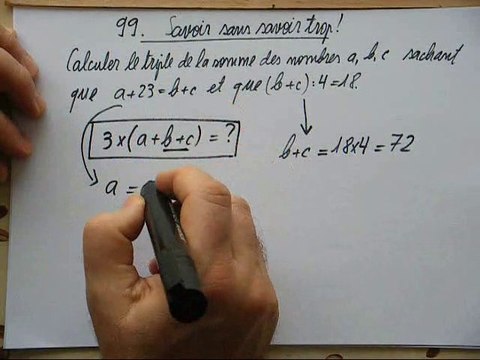 99. Savoir sans savoir trop!
Calculer le triple de la somme des nombres a, b, c sachant
que a+23=b+c et que (b+c):4=18.
3×(a+b+c) = ?
b+c = 18×4 = 72
a =